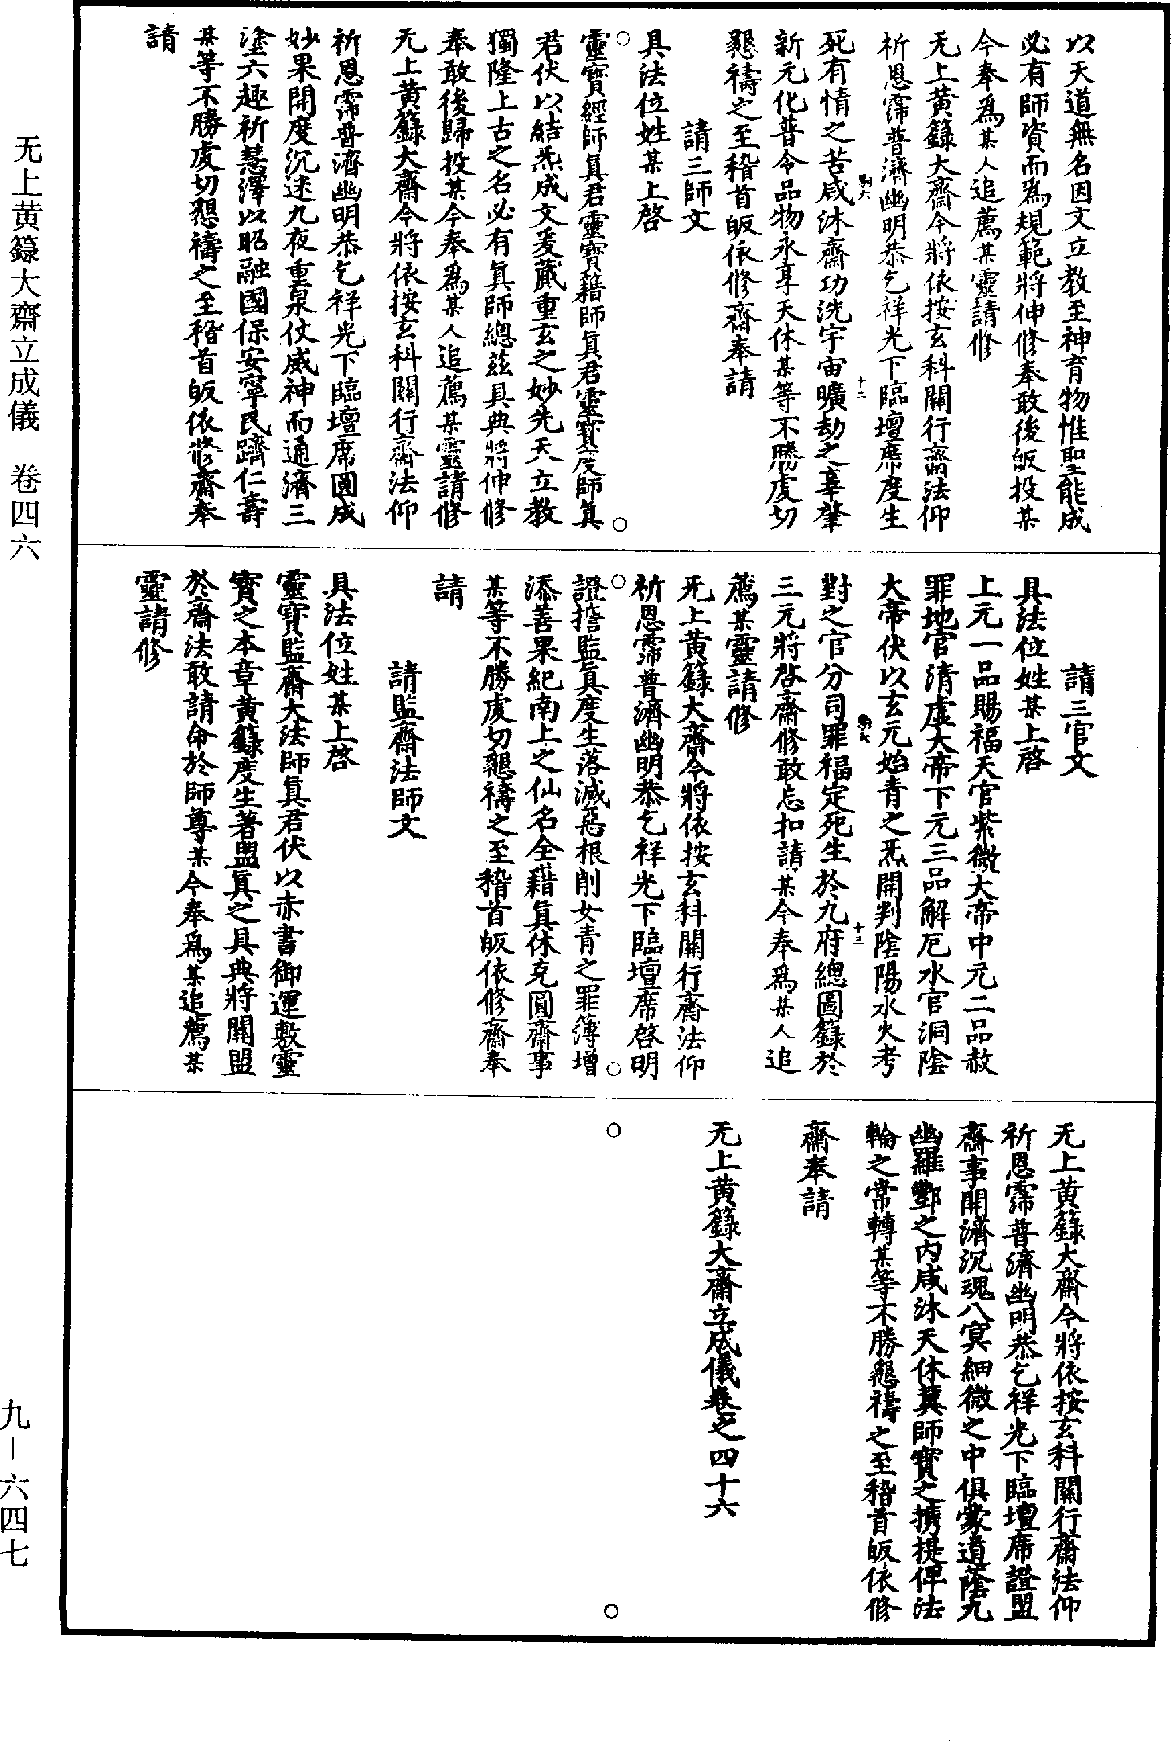 以天道無名因文立教至神育物惟聖能成
必有師資而爲規範將伸修奉敢後皈投某
今奉爲某人追薦某靈請修
无上黃籙大齋今將依按玄科關行齋法仰
祈恩霈普濟幽明恭乞祥光下臨壇席度生
死有情之苦咸沐齋功洗宇宙曠劫之辜肇
新元化普令品物永享天休某等不勝虔切
懇禱之至稽首皈依修齋奉請
請三師文
具法位姓某上啓
靈寶經師真君靈寶籍師真君靈寶度師真
君伏以結炁成文爰蕆重玄之妙先天立教
獨隆上古之名必有真師總兹具典將伸修
奉敢後歸投某今奉爲某人追薦某靈請修
无上黃籙大齋今將依按玄科關行齋法仰
祈恩霈普濟幽明恭乞祥光下臨壇席圓成
妙果開度沉迷九夜重泉仗威神而通濟三
塗六趣祈慧澤以昭融國保安寧民躋仁壽
某等不勝虔切懇禱之至稽首皈依修齋奉
請
十二
請三官文
具法位姓某上啓
上元一品賜福天官紫微大帝中元二品赦
罪地官清虛大帝下元三品解厄水官洞陰
大帝伏以玄元始青之炁開判陰陽水火考
對之官分司罪福定死生於九府總圖籙於
三元將啓齋修敢忘扣請某今奉爲某人追
薦某靈請修
无上黃籙大齋今將依按玄科關行齋法仰
祈恩霈普濟幽明恭乞祥光下臨壇席啓明
證擔監真度生落滅惡根削女青之罪簿增
添善果紀南上之仙名全藉真休克圓齋事
某等不勝虔切懇禱之至稽首皈依修齋奉
請
請監齋法師文
具法位姓某上啓
靈寶監齋大法師真君伏以赤書御運敷靈
寶之本章黃籙度生著盟真之具典將關盟
於齋法敢請命於師尊某今奉爲某追薦某
靈請修
十三
无上黃籙大齋今將依按玄科關行齋法仰
祈恩霈普濟幽明恭乞祥光下臨壇席證盟
齋事開濟沉魂八冥細微之中俱蒙道蔭九
幽羅酆之內咸沐天休冀師寶之携提俾法
輪之常轉某等不勝懇禱之至稽首皈依修
齋奉請
无上黃籙大齋立成儀卷之四十六
无上黄籙大齋立成儀　卷四六
九－六四七